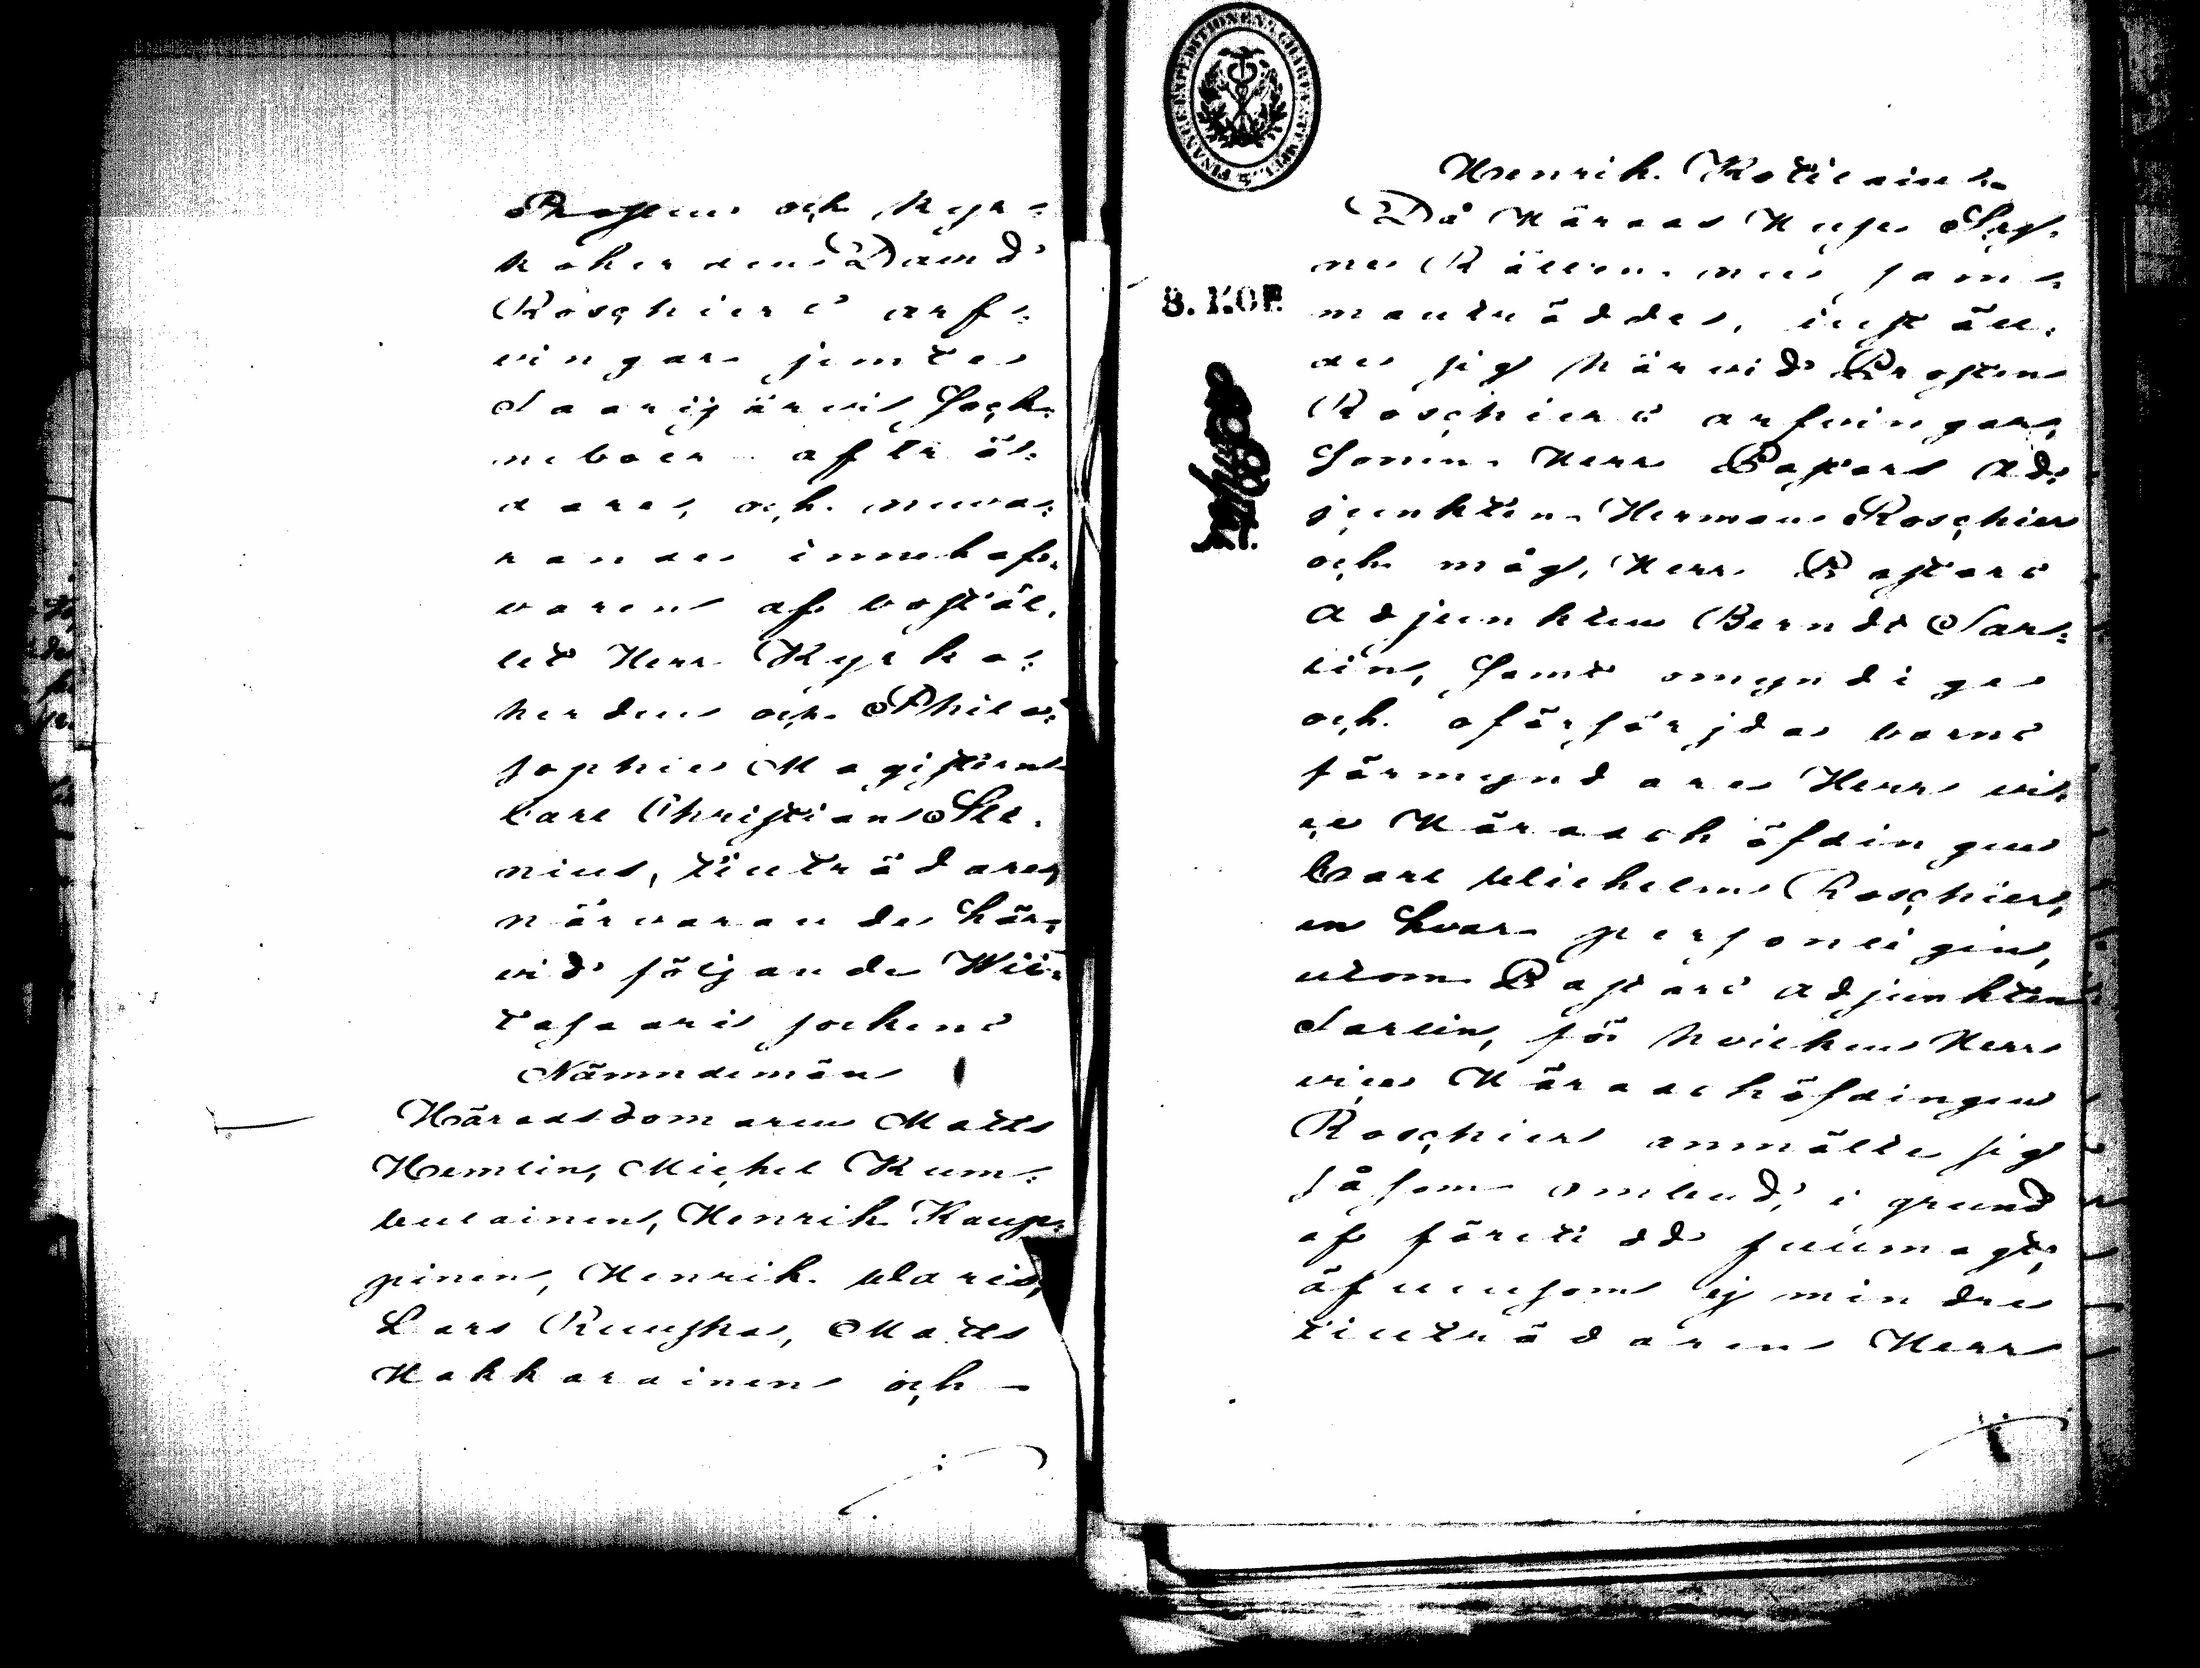 Prosten och Kyr-
koherden David
Roschiers arf-
vingar jemte
Saarijärvi Sock-
neboer afträ-
dare, och nuva-
rande innehaf-
varen af bostäl-
let Herr Kyrko-
herden och Philo-
sophie Magistern
Carl Christian Ste-
nius, tillträdare,
närvarande här-
vid följande Wii-
tasaari sockens
Nämndemän
Häradsdomaren Matts
Hemlin, Michel Kum-
bulainen, Henrik Kaup-
pinen, Henrik Ularis,
Lars Ruuska, Matts
Hakkarainen och
Henrik Kotilainen
Då Härads Syne
Rätten nu sam-
manträddes, instäl-
de sig härvid Prosten
Roschiers arfvingar,
Sonen Herr Pastors Ad-
junkten Herman Roschier
och måg, Herr Pastors
Adjunkten Berndt Sar-
lin, samt omyndige
och oförsörjda barns
förmyndare Herr vi-
ce Häradshöfdingen
Carl Wilhelm Roschier,
en hvar personligen,
utom Pastors Adjunkten
Sarlin, för hvilken Herr
vice Häradshöfdingen
Roschier anmälte sig
såsom ombud, i grund
af företedd fullmagt,
äfvensom ej mindre
tillträdaren Herr
FINANCE EXPEDITIONENS CHARTÆ STEMPEL
8. KOP.